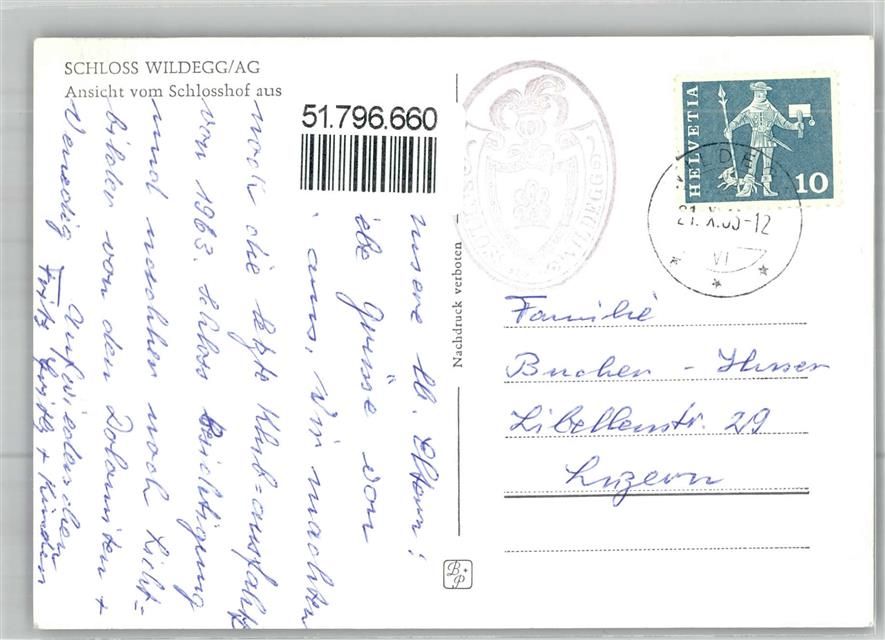 SCHLOSS WILDEGG/AG
Ansicht vom Schlosshof aus
51.796.660
unsere lb. Eltern!
liebe Grüsse von
uns, Wir machten
noch die letzte Klub=ausfahrt
von 1963. Schloss Besichtigung
und nachher noch Licht=
bilder von den Dolomiten +
Venedig Aufwiedersehen
Fritz + Kinder
Nachdruck verboten
SCHLOSS WILDEGG
HELVETIA
10
WILDEGG
21.X.63-12
VI
Familie
Bucher - Huser
Libellenstr. 29
Luzern
B+P